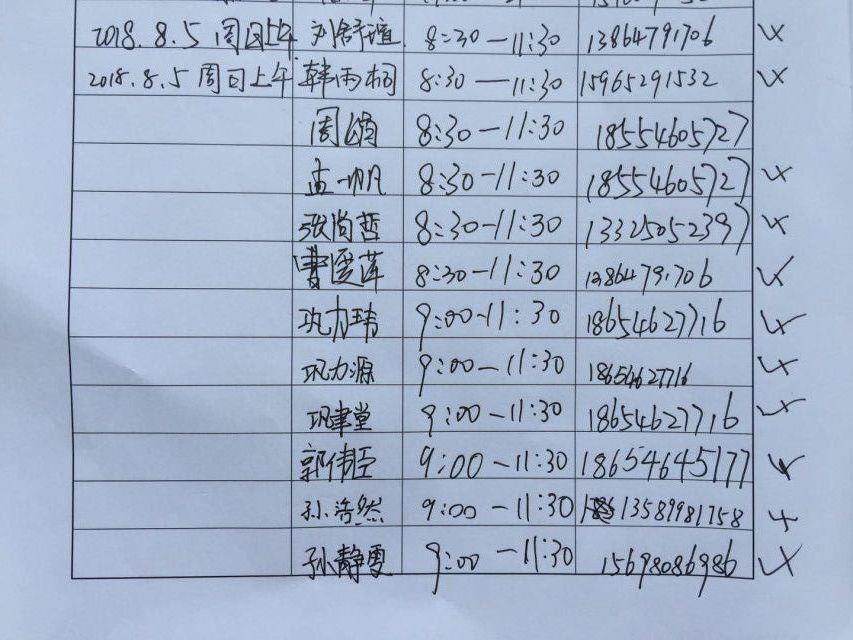 2018.8.5 周日上午 刘舒瑄 8:30—11:30 13864791706
2018.8.5 周日上午 韩雨桐 8:30—11:30 15965291532
周鸽 8:30—11:30 18554605727
孟一帆 8:30—11:30 18554605727
张尚哲 8:30—11:30 13325052397
曹爱莲 8:30—11:30 13864791706
巩力玮 9:00—11:30 18654627716
巩力源 9:00—11:30 18654627716
巩聿堂 9:00—11:30 18654627716
郭伟臣 9:00—11:30 18654645177
孙浩然 9:00—11:30 13589981758
孙静雯 9:00—11:30 15698086986